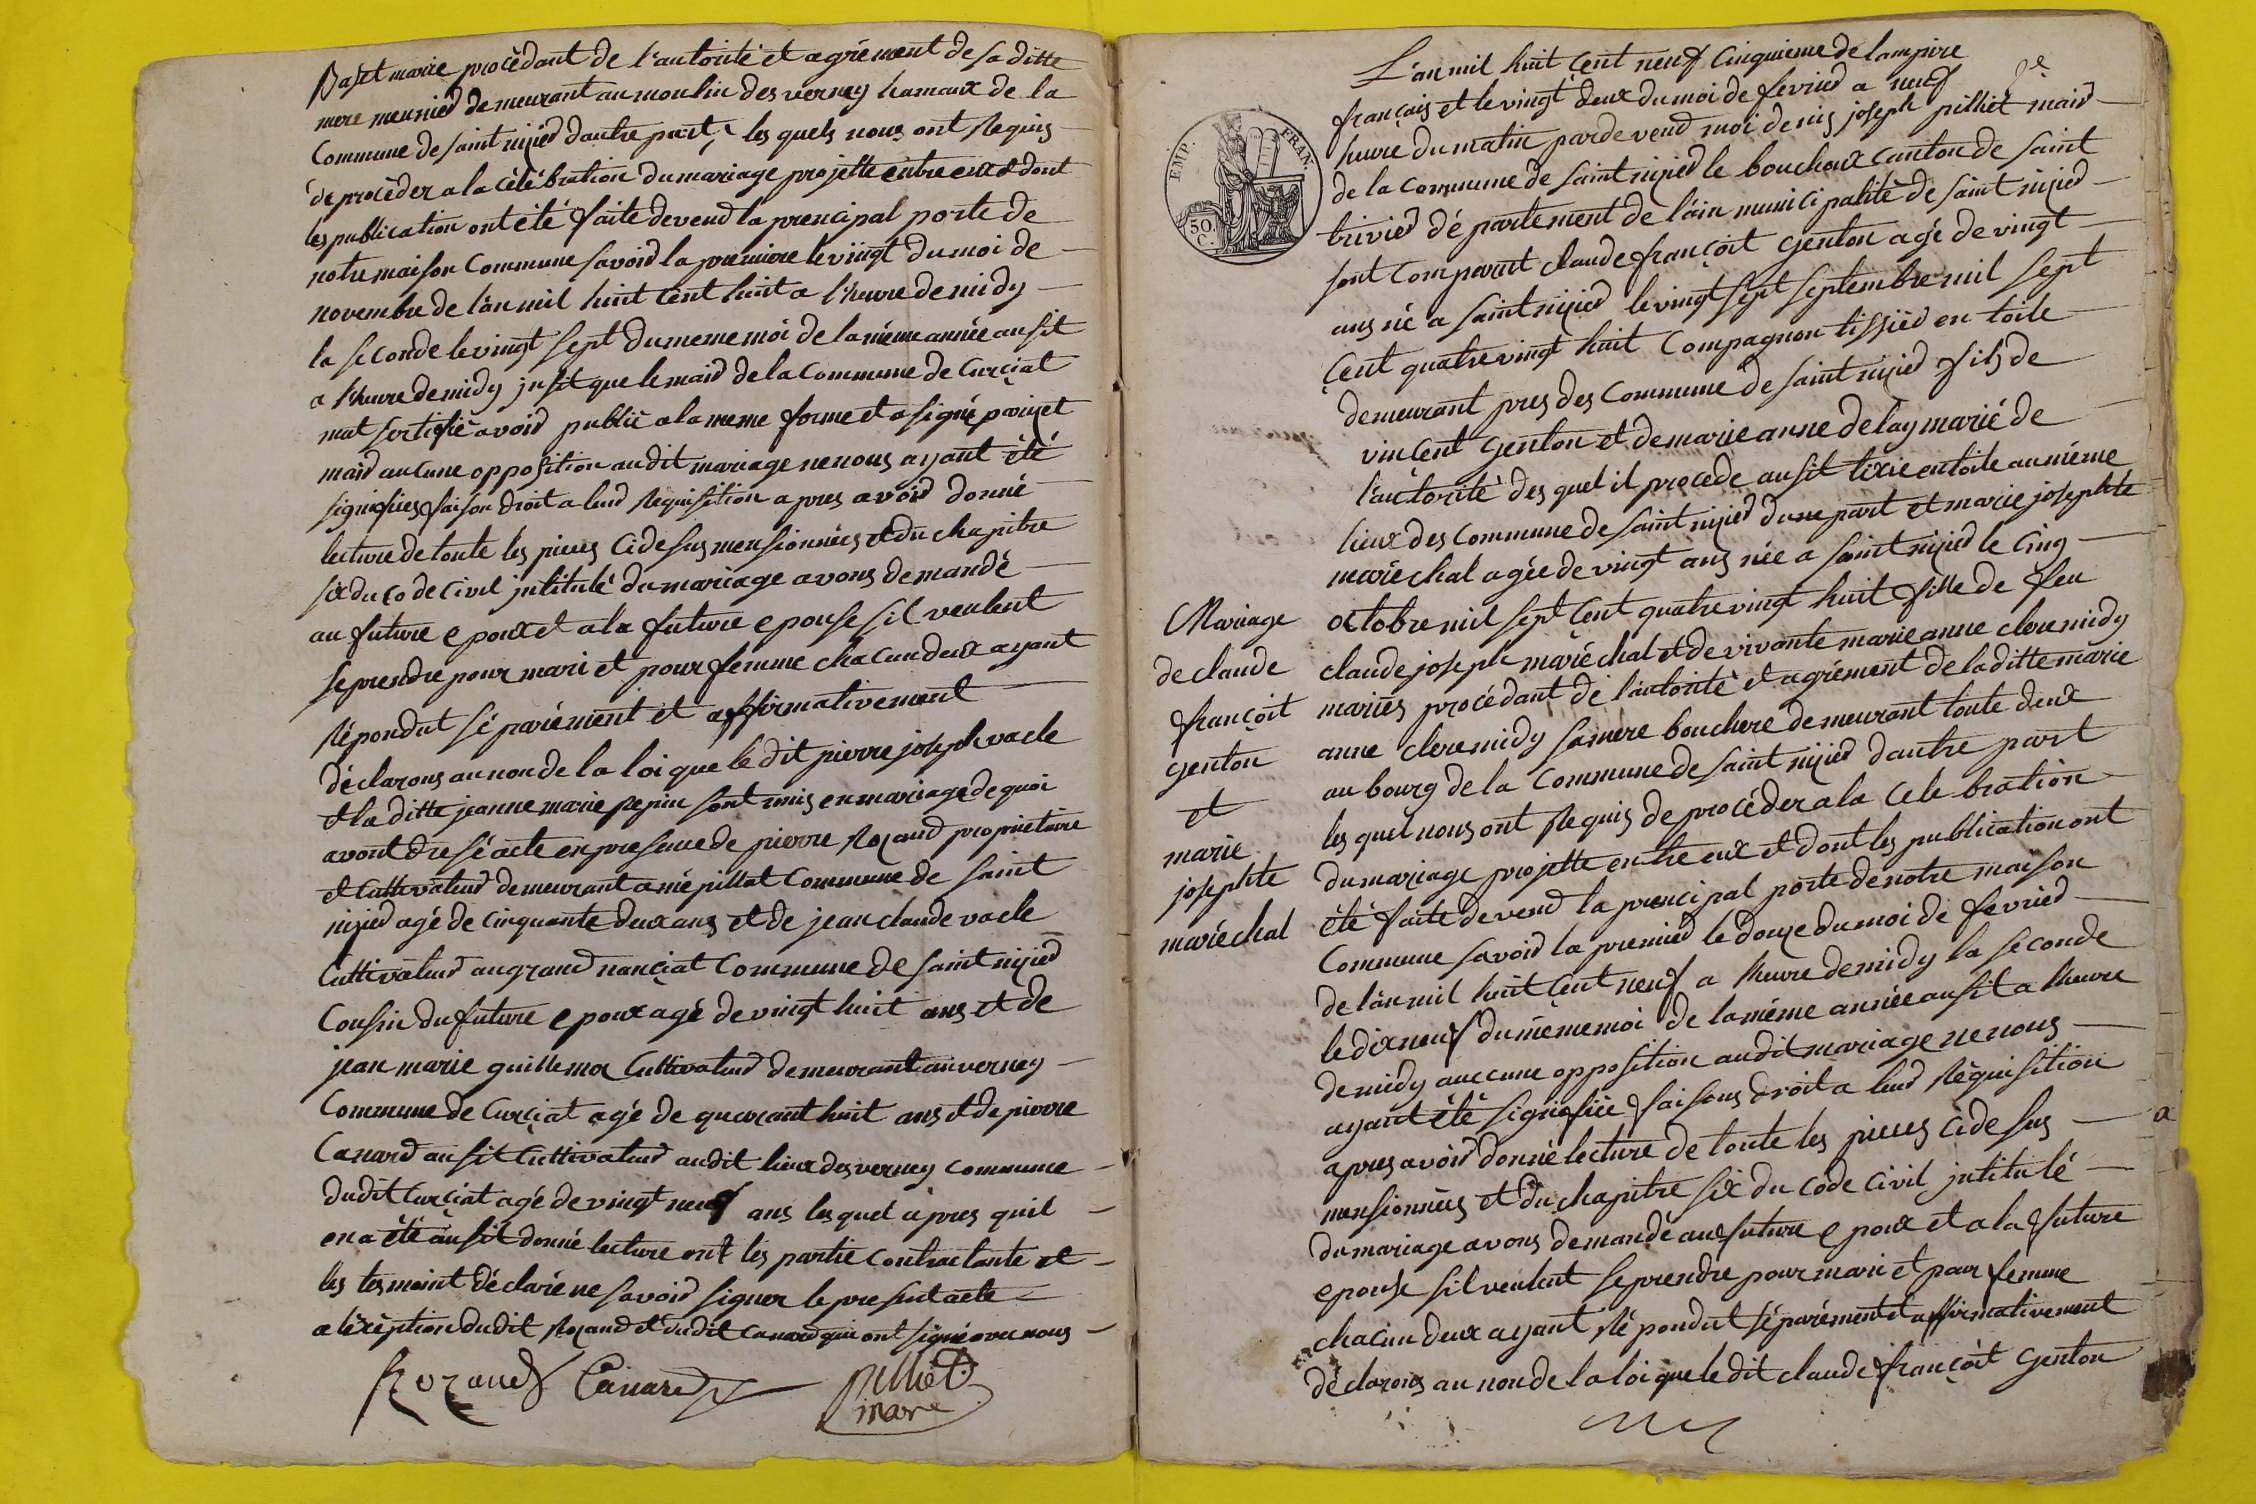 Bajet marie procèdant de l'autorité et agrément de sa ditte
mere meunied demeurant au moulin des verney hamaux de la
Commune de saint nizied d'autre part, les quels nous ont Requis
de procèder a la célébration du mariage projette entre eux et dont
les publication ont été faite devend la prencipal porte de
notre maison Commune savoid la première le vingt du moi de
novembre de l'an mil huit cent huit a l'heure de midy
la seconde le vingt sept du meme moi de la même année ausit
a l'heure de midy jusit que le maid de la Commune de Curçiat
mat sertifié avoid publié a la meme forme et a signé
maid aucune opposition audit mariage ne nous ayant été
signifiées faison droit a leud Requisition apres avoid donné
lecture de toute les pieces Cidesus mensionnées et du chapitre
six du Code Civil jntitulé du mariage avons demandé
au future epoux et a la future epouse sil veulent
se prendre pour mari et pour femme chacun deux ayant
Répondut séparément et affirmativement
déclarons au non de la loi que le dit pierre joseph vacle
et la ditte jeanne marie pepin sont unis en mariage de quoi
avont dresé acte en presence de pierre Rozand proprietaire
et Cultivateud demeurant a mépillat Commune de saint
nizied agé de cinquante deux ans et de jean claude vacle
Cultivateud au grand nançiat Commune de saint nizied
Cousin du future epoux agé de vingt huit ans et de
jean marie guillemot Cultivateud demeurant au verney
Commune de Curçiat agé de quarant huit ans et de pierre
Canard ausit Cultivateud audit lieux des verney commune
dudit Curçiat agé de vingt neuf ans les quel apres quil
en a été ausit donné lecture ont les partie contractante et
les tesmoint déclaré ne savoid signer le present acte
a léxéption dudit Rozand et dudit Canard qui ont signé avec nous
Rozand Canard pilliet
maire
L'an mil huit cent neuf Cinquieme de lampire
français et le vingt deux du moi de fevried a neuf
heure du matin pardevend moi denis joseph pilliet maid
de la Commune de saint nizied le bouchoux canton de saint
trivied département de l'ain municipalité de saint nizied
sont comparut claude françoit genton agé de vingt
ans né a saint nizied le vingt sept septembre mil sept
Cent quatre vingt huit Compagnon tissied en toile
demeurant pres des Commune de saint nizied fils de
vincent genton et de marie anne delay marié de
l'autorité des quel il procede ausit tixie en toile au même
lieux des Commune de saint nizied dune part et marie josephte
maréchal agée de vingt ans née a saint nizied le cinq
octobre mil sept Cent quatre vingt huit fille de feu
claude joseph maréchal et de vivante marie anne cleremidy
mariés procédant de l'autorité et agrément de la ditte marie
anne cleremidy sa mere bouchere demeurant toute deux
au bourg de la Commune de saint nizied d'autre part
les quel nous ont Requis de procéder a la Celebration
du mariage projette entre eux et dont les publication ont
été faite devend la prencipal porte de notre maison
Commune savoid la premied le douze du moi de fevried
de l'an mil huit Cent neuf a heure de midy la seconde
le dix neuf du même moi de la même année ausit a heure
de midy auccune opposition audit mariage ne nous
ayant été signifiée faisons droit a leud Réquisition
apres avoid donné lecture de toute les pieces Cidesus
mensionnées et du chapitre six du code Civil jntitulé
du mariage avons demandé au future epoux et a la future
epouse sil veulent se prendre pour mari et pour femme
chacun deux ayant Répondut séparément et affirmativement
déclarons au non de la loi que le dit claude françoit genton
Mariage
de claude
françoit
genton
et
marie
josephte
maréchal
EMP. FRAN.
50
C.